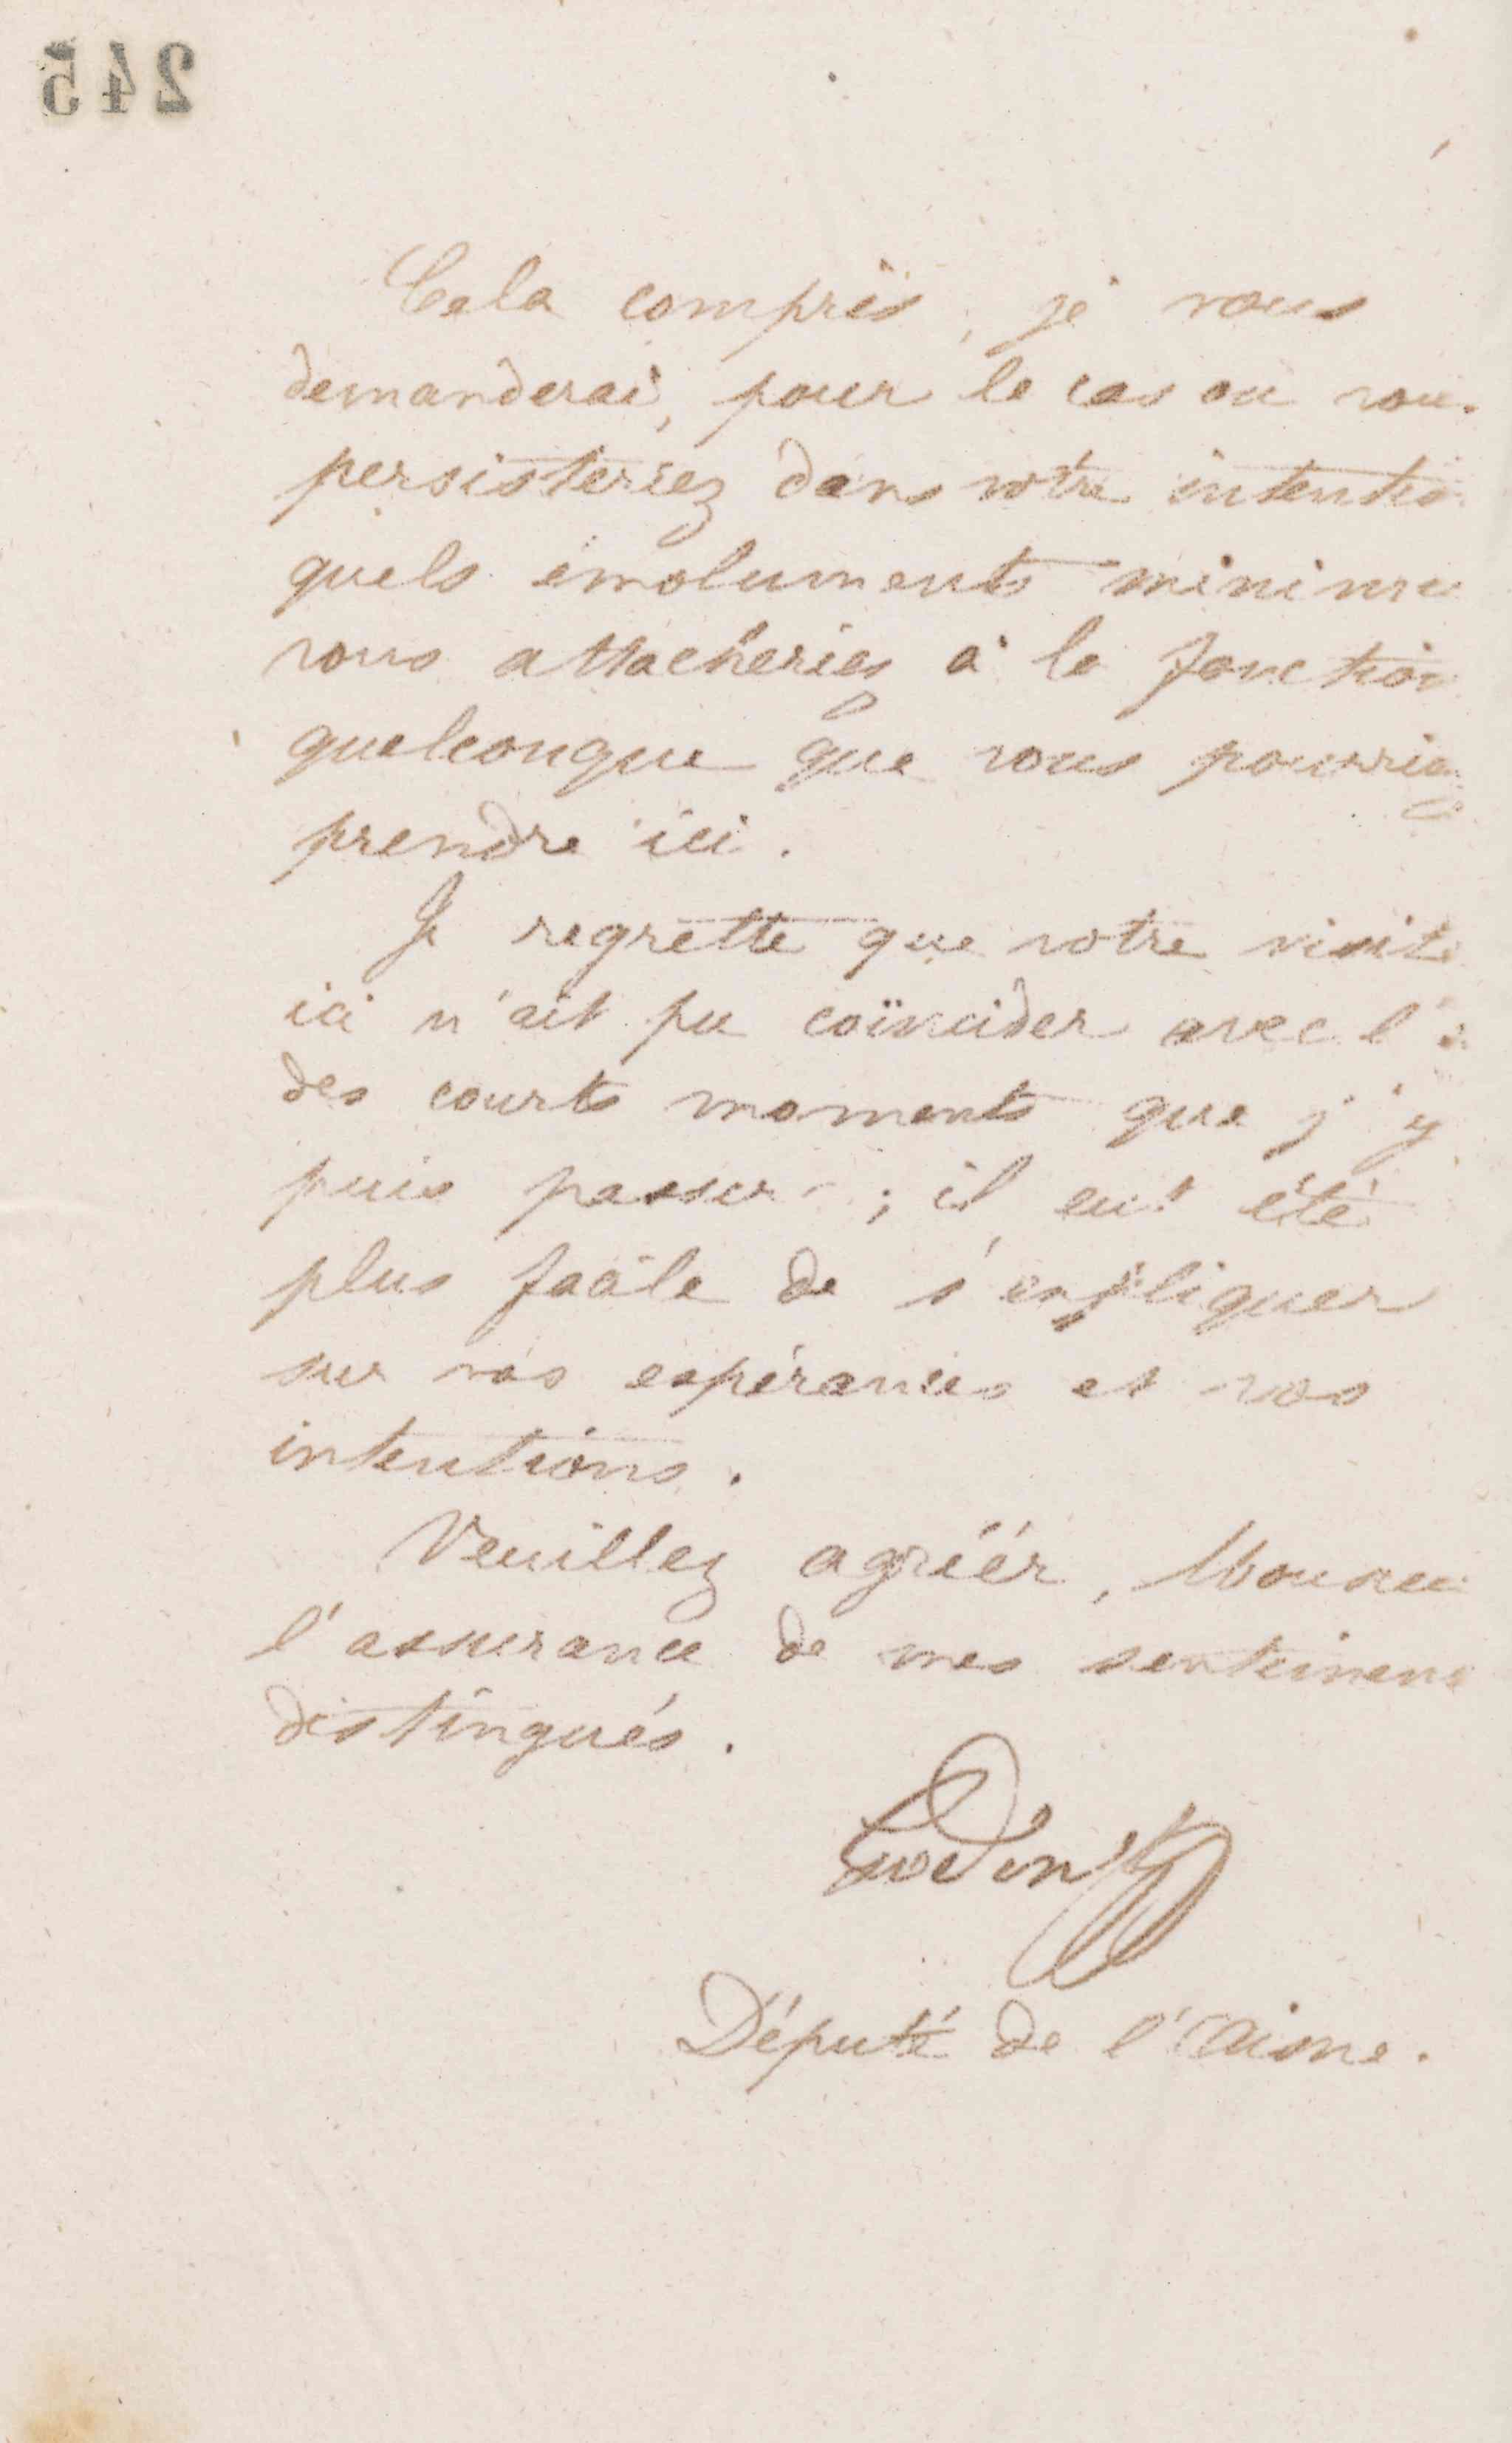 245
Cela compris, je vous
demanderai, pour le cas ou vou
persisteriez dans votre intentio
quels émoluments minimu
vous attacheriez à la fonction
quelconque que vous pourriez
prendre ici.
Je regrette que votre visite
ici n'ait pu coïncider avec l'
des courts moments que j'y
puis passer ; il eut été
plus facile de s'expliquer
sur vos espérances et vos
intentions.
Veuillez agréér, Monsieu
l'assurance de mes sentimens
distingués.
Godin
Député de l'Aisne.